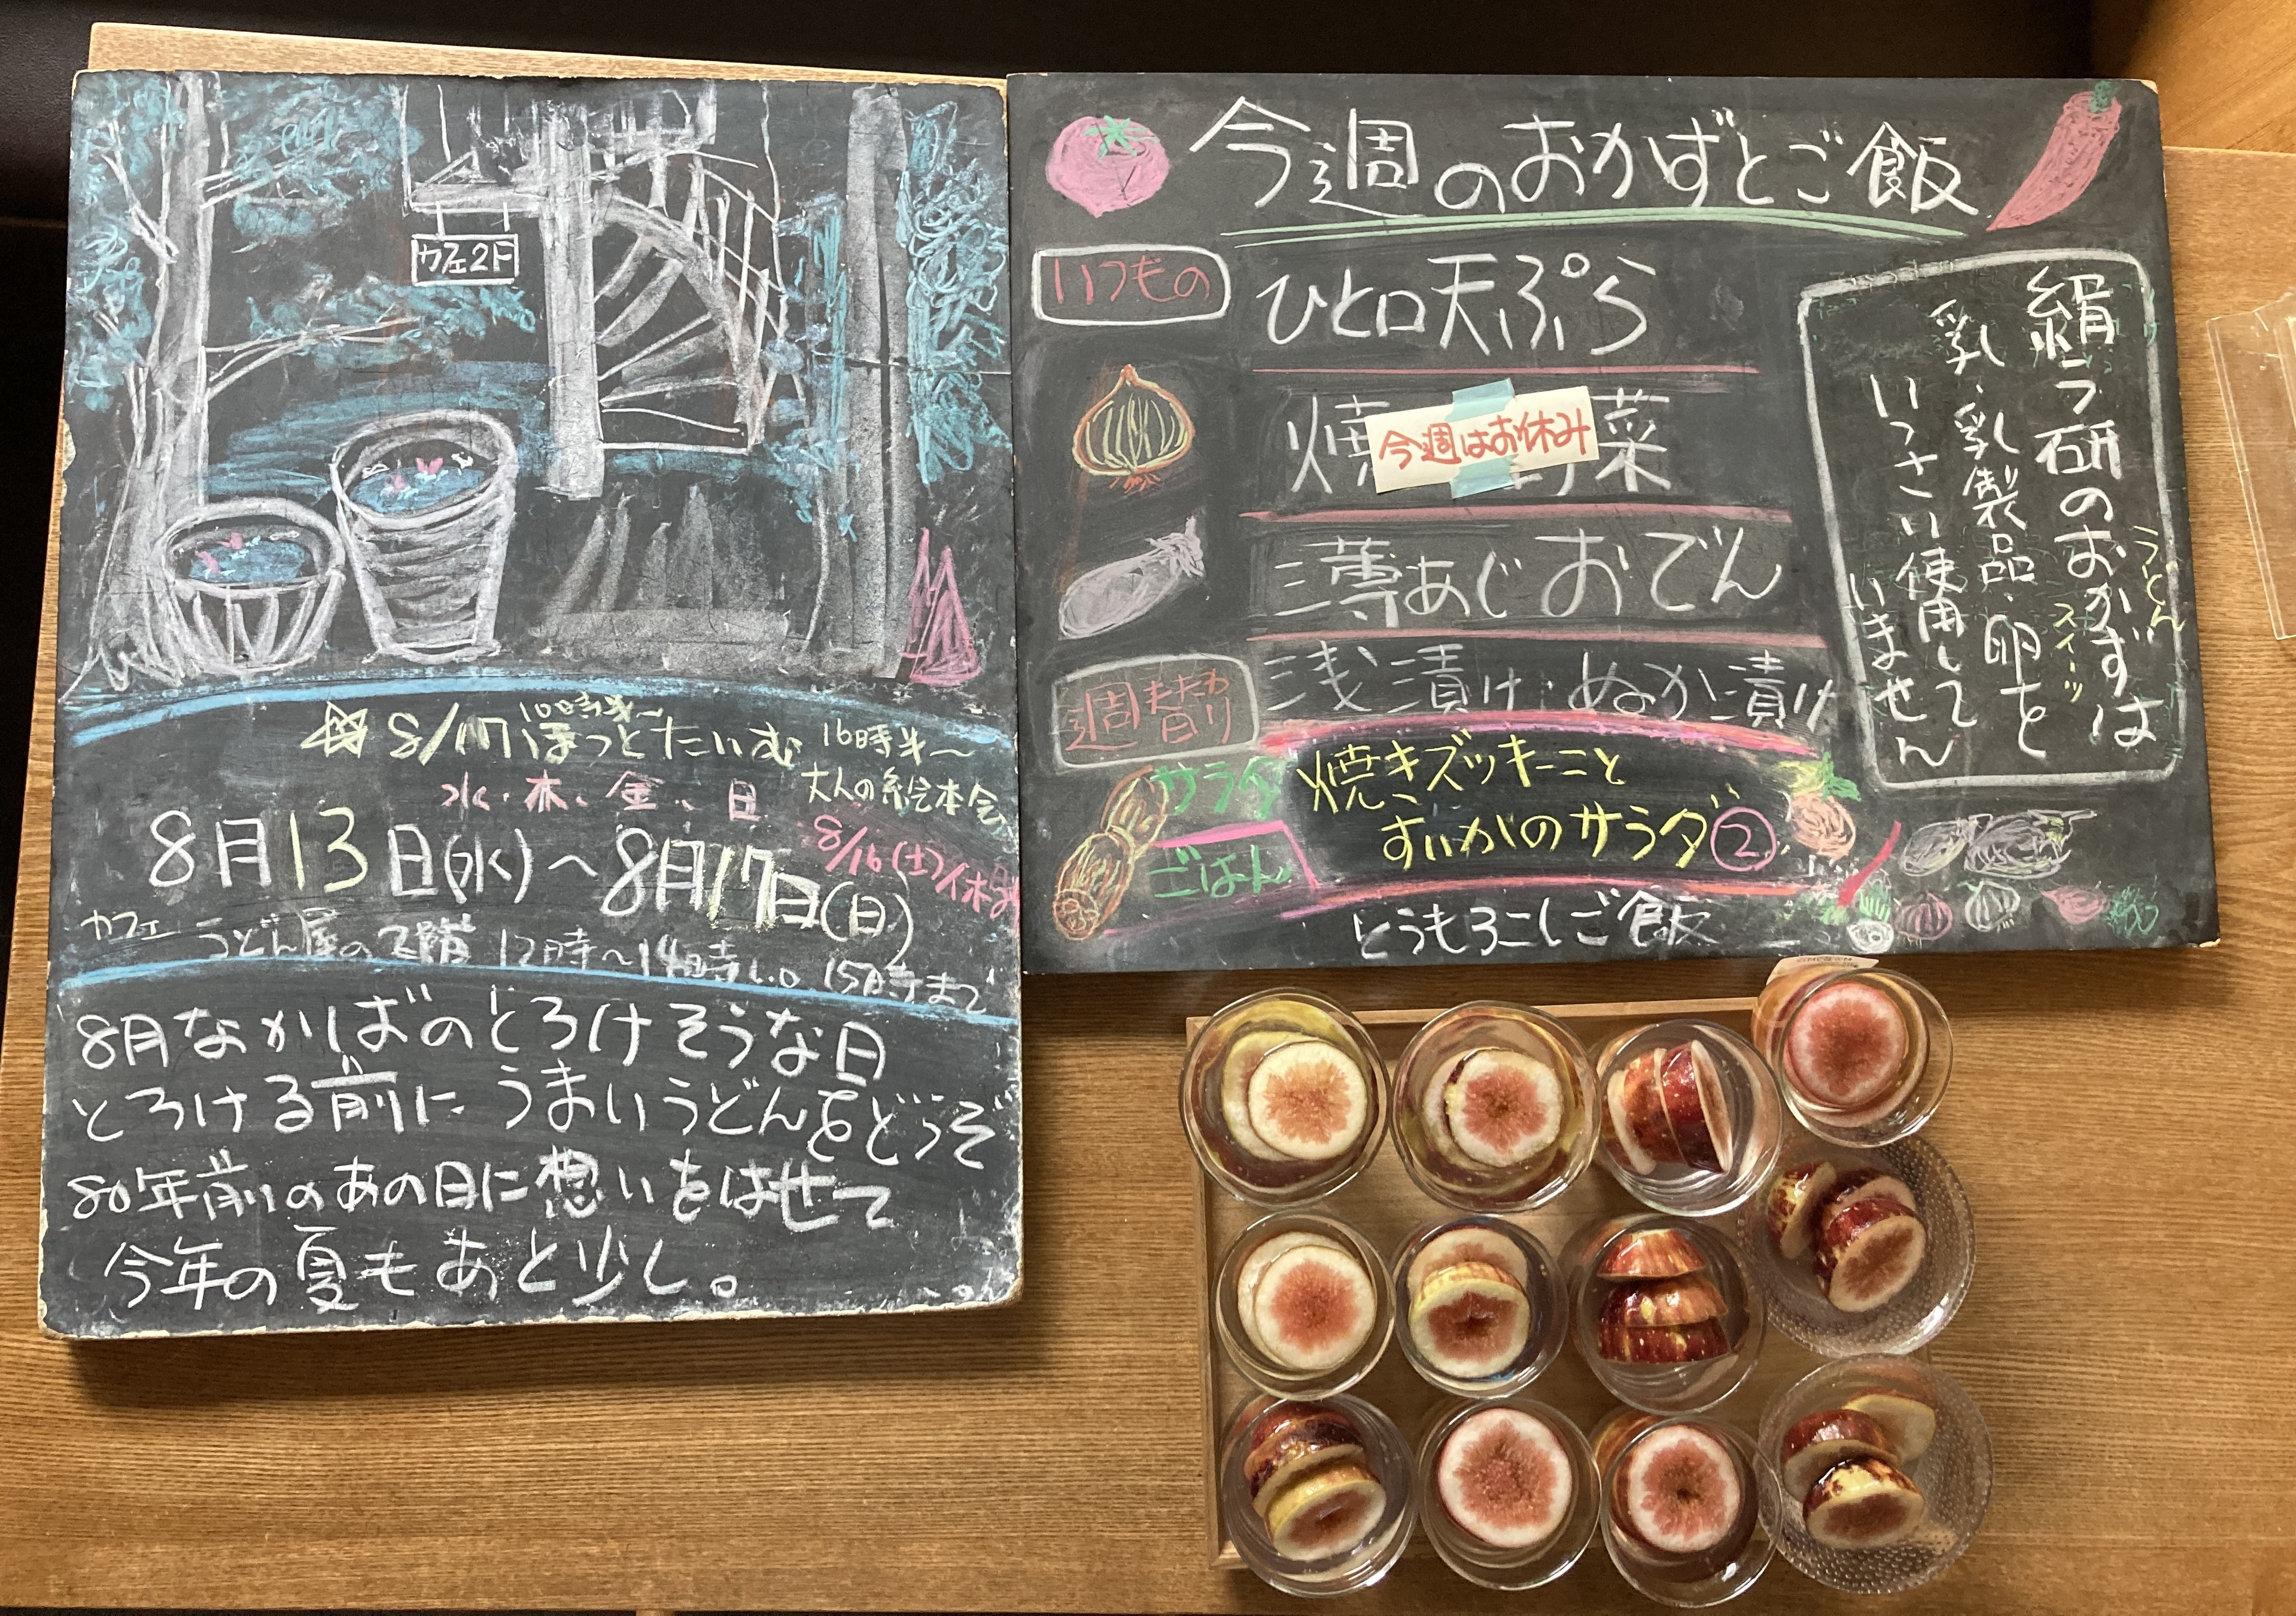 カフェ2F
☆ 8/17 ほっとたいむ
10時半〜
16時半〜
大人の絵本会
水・木、金、日
8/16(土)休み
8月13日(水)〜8月17日(日)
カフェ うどん屋の2階 12時〜14時L.O 15時まで
8月なかばのとろけそうな日
とろける前にうまいうどんをどうぞ
80年前のあの日に想いをはせて
今年の夏もあと少し。
今週のおかずとご飯
いつもの
ひと口天ぷら
焼 菜
今週はお休み
薄あじおでん
週替り
浅漬け・ぬか漬け
サラダ
焼きズッキーニと
すいかのサラダ②
ごはん
とうもろこしご飯
絹う研のおかずは
うどん
スイーツ
乳・乳製品・卵を
いっさい使用して
いません